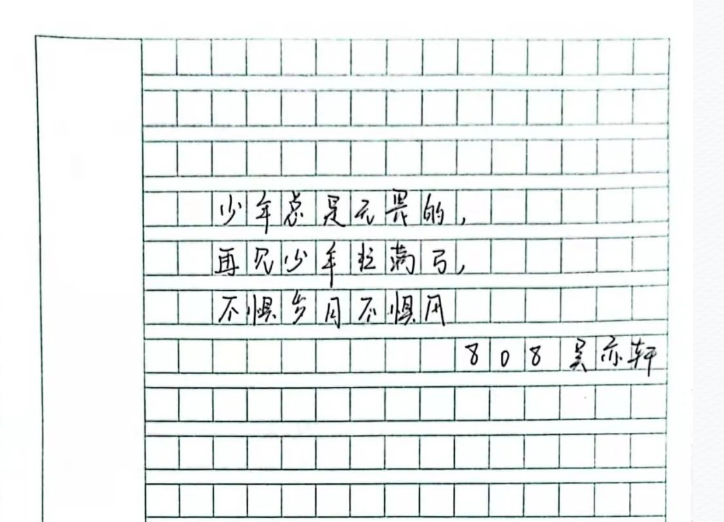 少年总是无畏的，
再见少年拉满弓，
不惧岁月不惧风
808吴亦轩